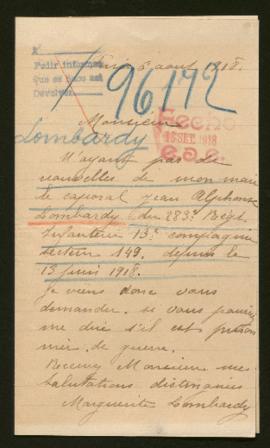 Paris 6 aout 1918.
Pedir informe
que se pase est
Devolver
96172
Monsieur
Fecho
16 SET. 1918
Lombardy
N'ayant pas de
nouvelles de mon mari
le caporal Jean Alphonse
Lombardy du 283e Régt
Infanterie 13e compagnie
secteur 149. depuis le
13 juin 1918.
Je viens donc vous
demander. si vous pouvez
me dire s'il est prison
nier de guerre.
Recevez Monsieur mes
salutations distinguées
Marguerite Lombardy